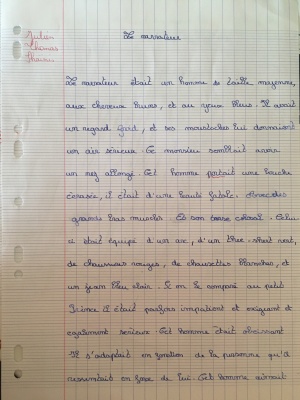 Julien
Thomas
Le narrateur
Le narrateur était un homme de taille moyenne,
aux cheveux bruns, et au yeux bleus. Il avait
un regard froid, et ses moustaches lui donnaient
un air sérieux. Ce monsieur semblait avoir
un nez allongé. Cet homme portait une bouche
écrasée, il était d'une beauté fatale. Avec des
grands bras musclés. Et son torse
était équipé d'un arc, d'un tee-short vert,
de chaussures rouges, de chaussettes blanches, et
un jean bleu clair. Si on le compare au petit
Prince il était parfois impatient et exigeant et
également sérieux. Cet homme était obéissant
Il s'adaptait en fonction de la personne qu'il
en face de lui. Cet homme